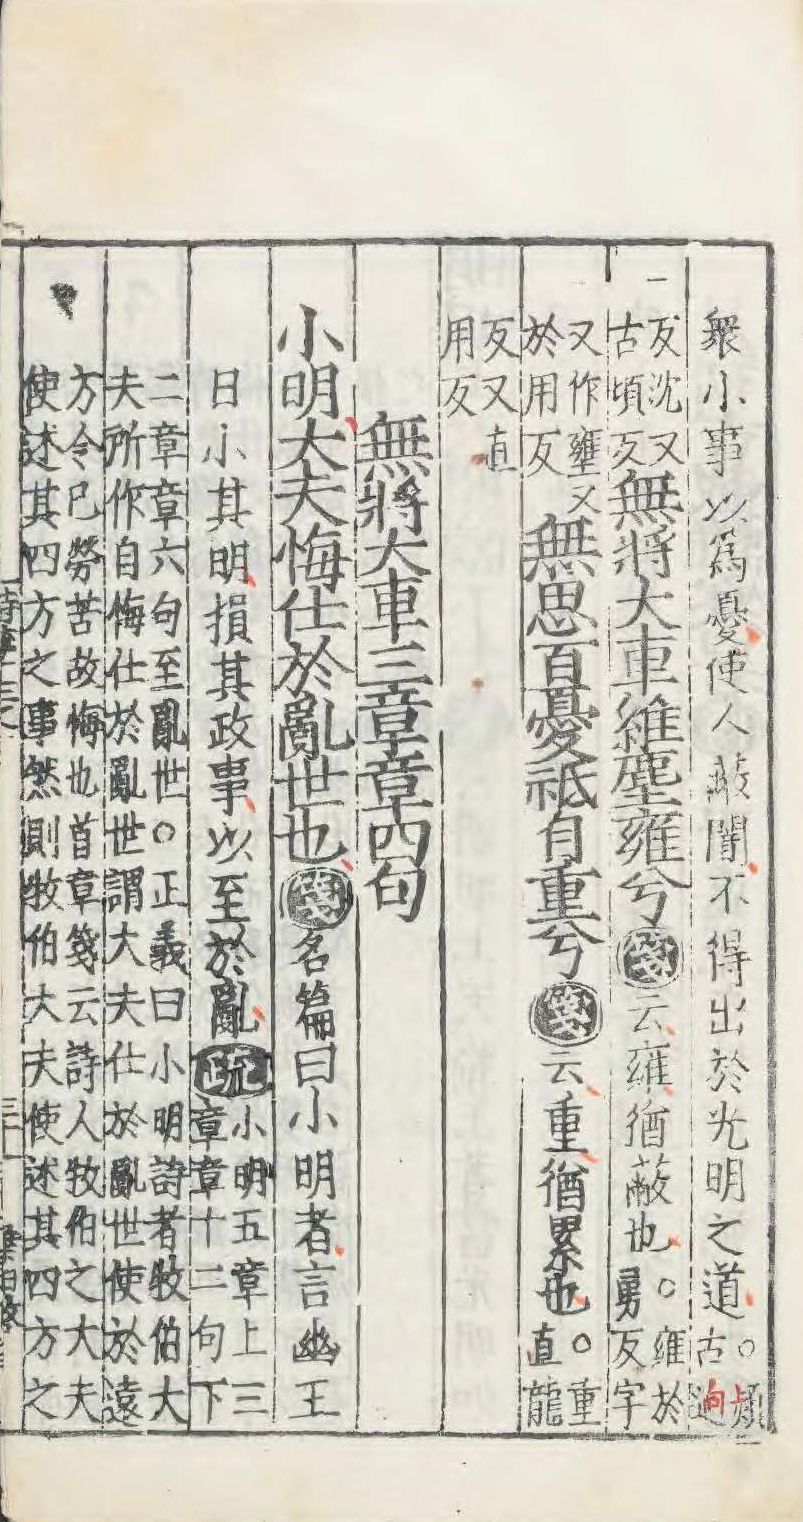 衆小事以爲憂使人蔽闇不得出於光明之道○熲古迥
反沈又古頃反無將大車維塵雍兮箋云雍猶蔽也○雍於勇反字
又作壅又於用反無思百憂祗自重兮箋云重猶累也○重直龍
反又直用反
無將大車三章章四句
小明大夫悔仕於亂世也箋名篇曰小明者言幽王
日小其明損其政事以至於亂疏小明五章上三章章十二句下
二章章六句至亂世○正義曰小明詩者牧伯大
夫所作自悔仕於亂世謂大夫仕於亂世使於遠
方令已勞苦故悔也首章箋云詩人牧伯之大夫
使述其四方之事然則牧伯大夫使述其四方之